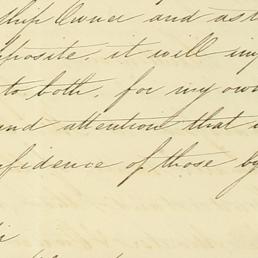 ship Owner and as
posite, it will my
to both, for my own
and attention that
nfidence of those by